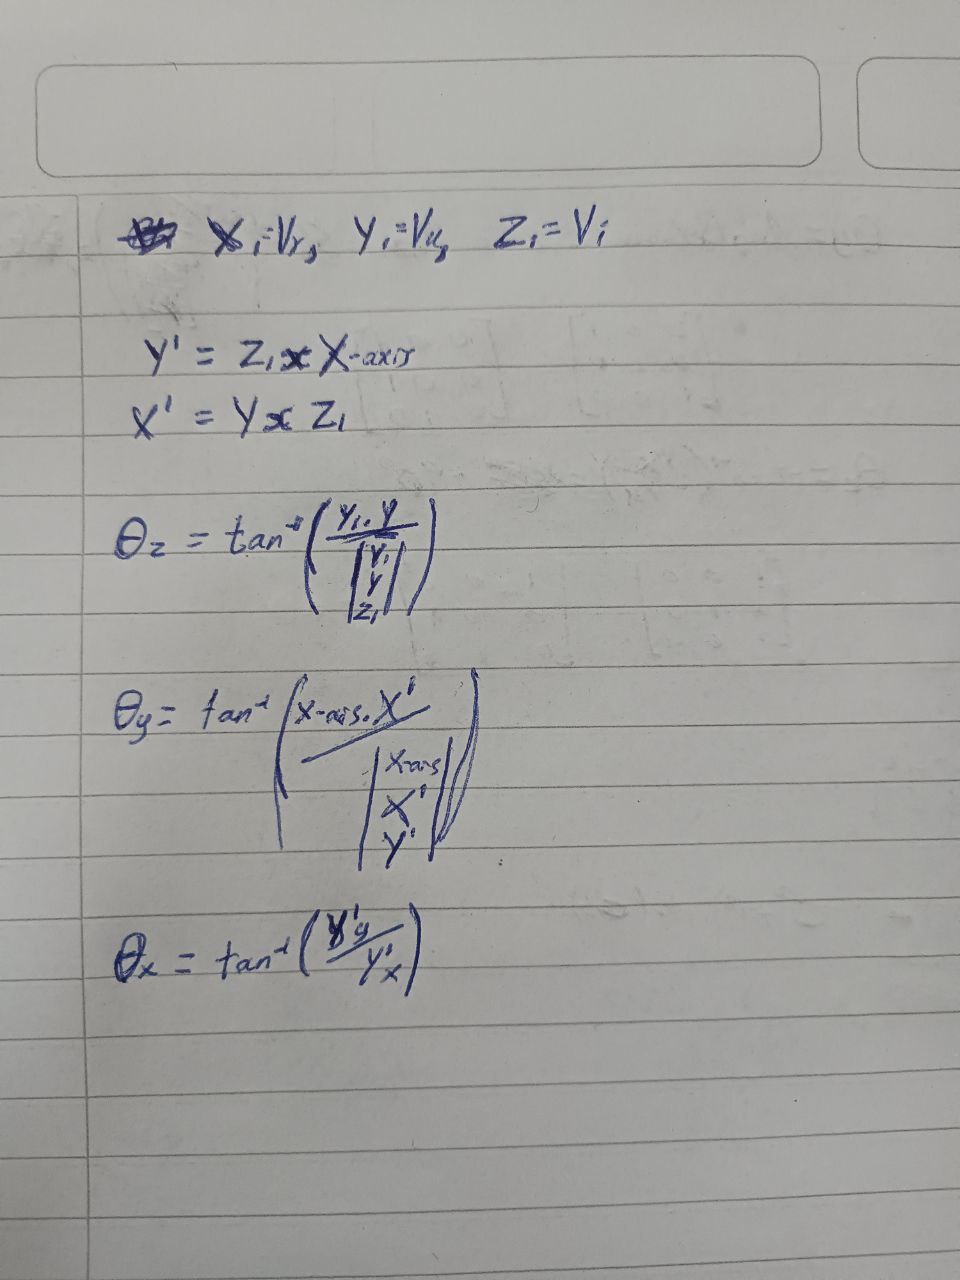 X₁=Vr, Y₁=Vu, Z₁=Vi
Y' = Z₁ x X-axis
X' = Y x Z₁
θz = tan⁻¹ (Y₁.Y / |Y₁ Y Z₁|)
θy = tan⁻¹ (X-axis.X' / |X-axis X' Y'|)
θx = tan⁻¹ (Y'y / Y'x)